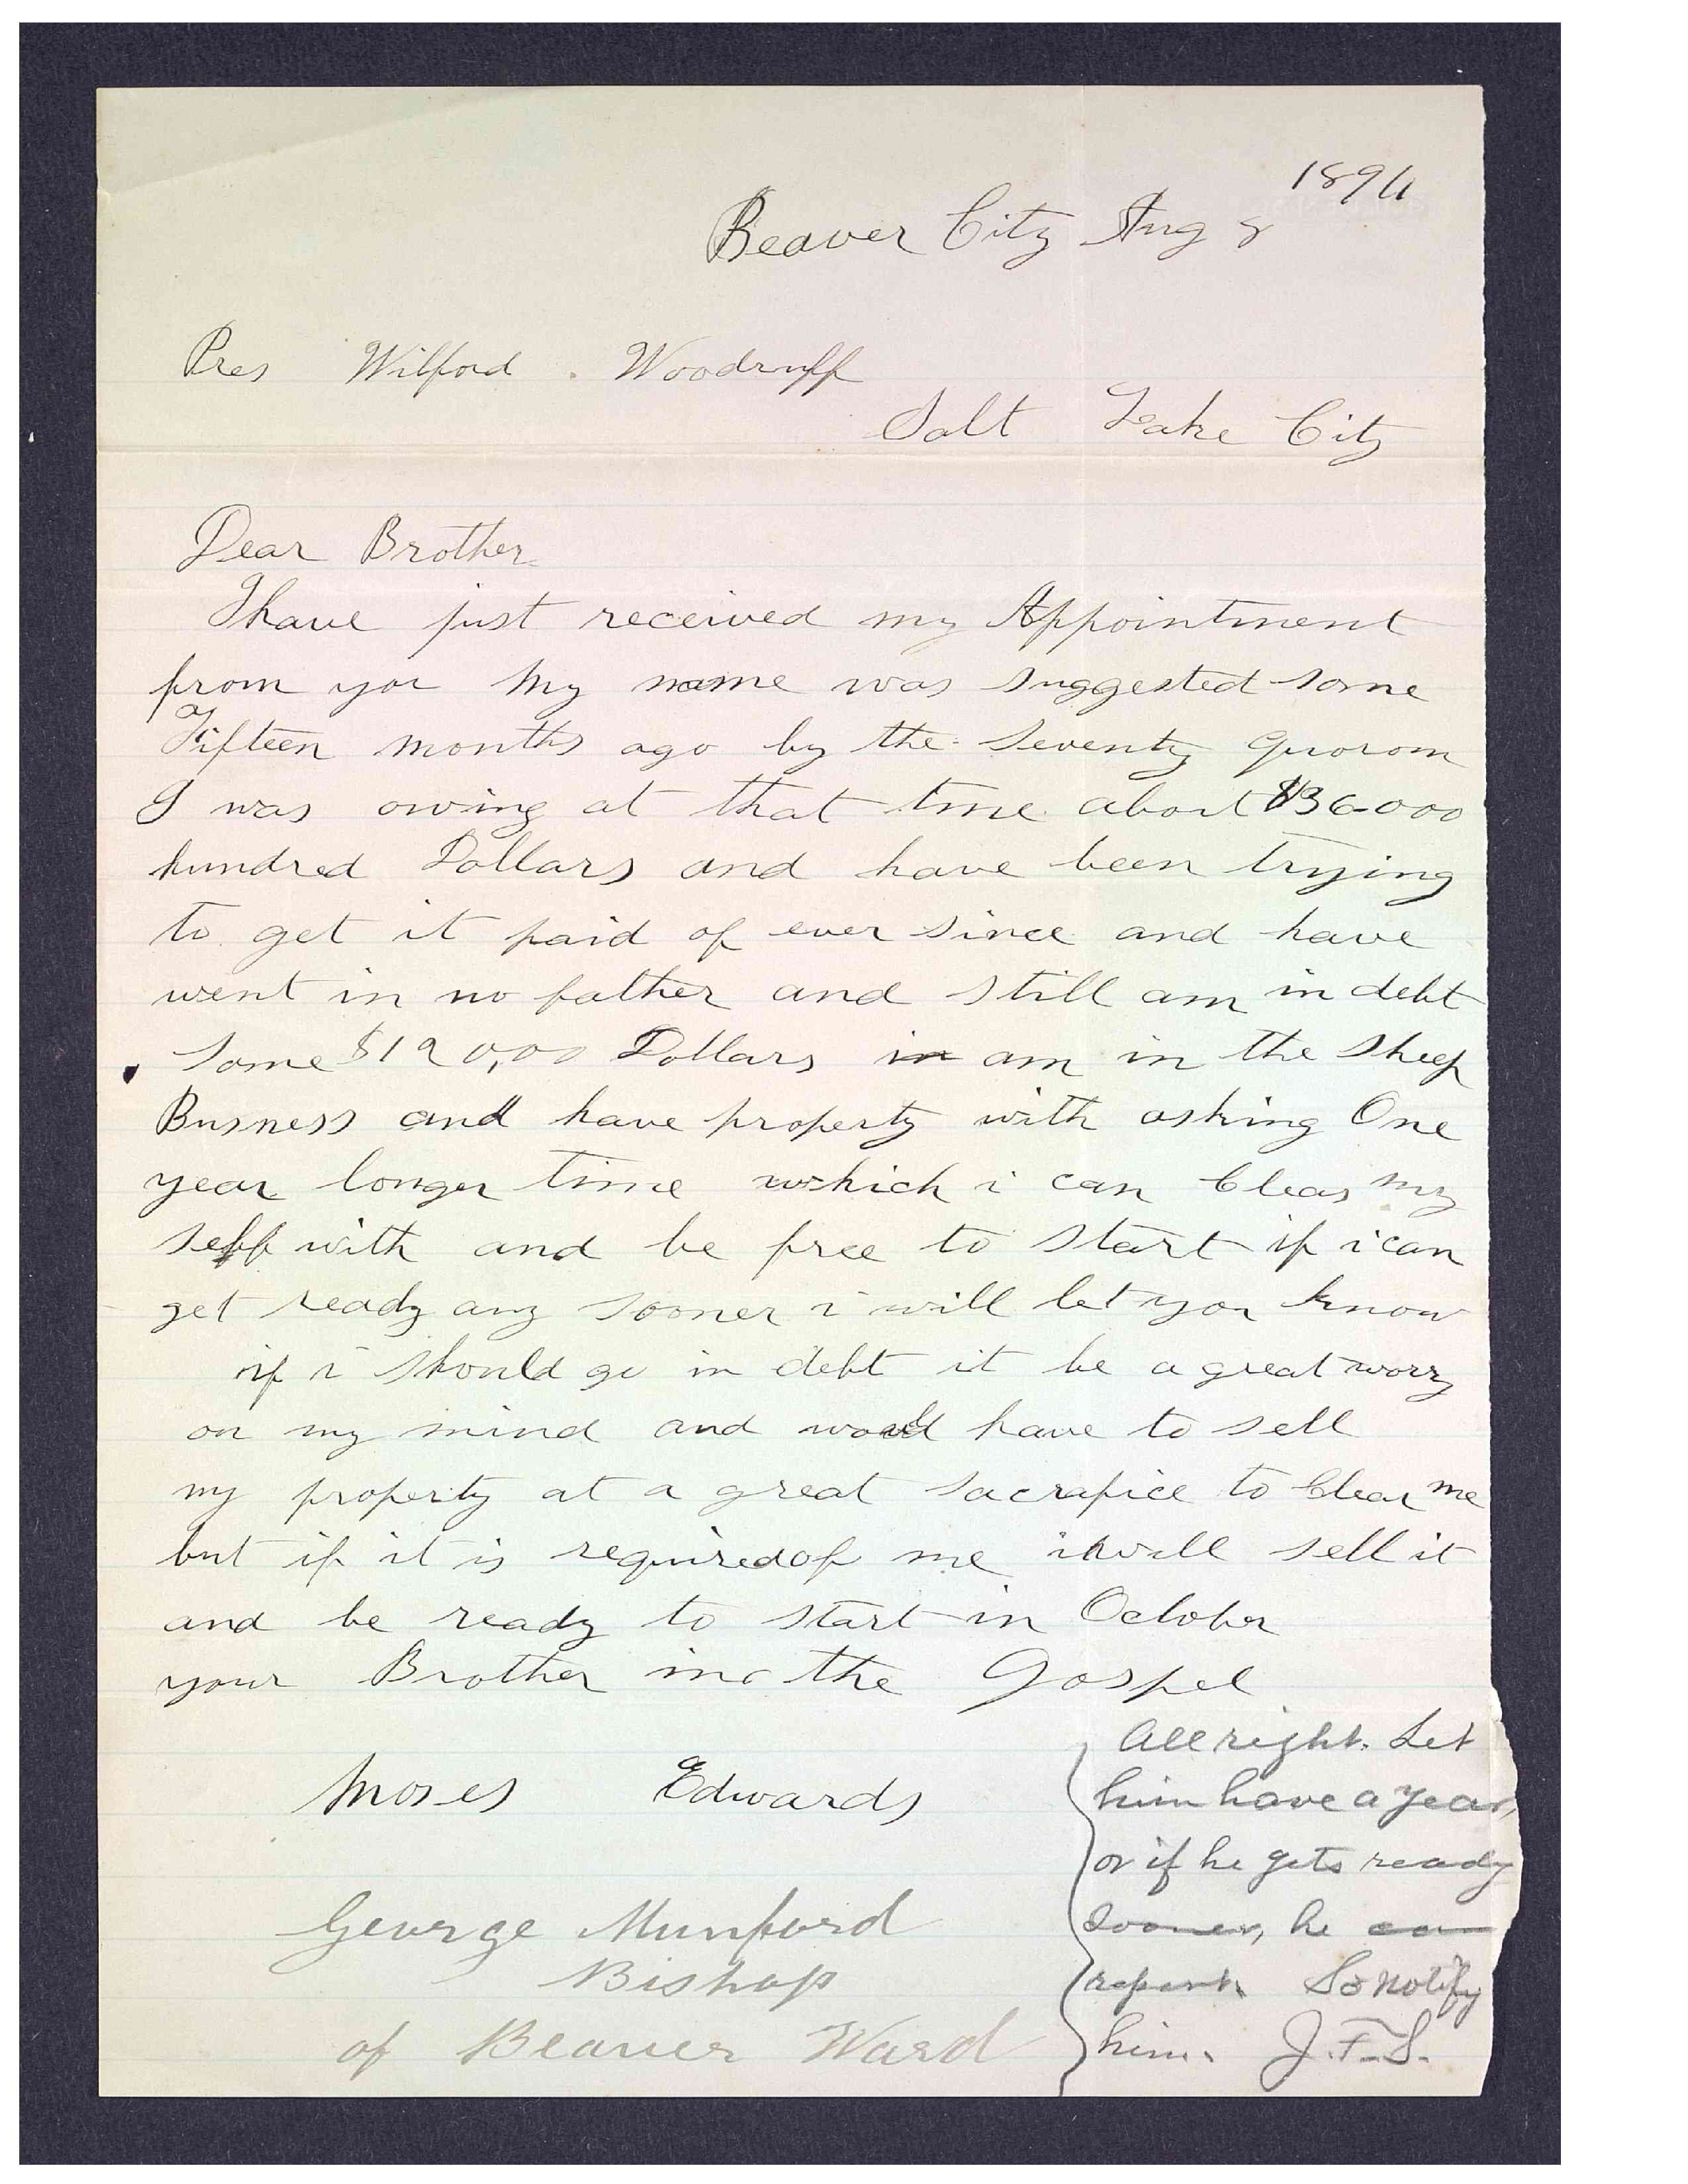 1894
Beaver City Aug 8
Pres Wilford Woodruff
Salt Lake City
Dear Brother
I have just received my Appointment
from you My name was suggested some
Fifteen months ago by the Seventy quorom
I was owing at that time about $36000
hundred Dollars and have been trying
to get it paid of ever since and have
went in no father and still am in debt
Some $190,00 Dollars in am in the Sheep
Busness and have property with asking One
year longer time which i can Clear my
self with and be free to start if i can
get ready any sooner i will let you know
if i should go in debt it be a great worry
on my mind and would have to sell
my property at a great sacrafice to Clear me
but if it is required of me i will sell it
and be ready to start in October
your Brother in the Gospel
Moses Edwards
George Munford
Bishop
of Beaver Ward
All right. Let
him have a year,
or if he gets ready
sooner, he can
report. So notify
him. J.F.S.